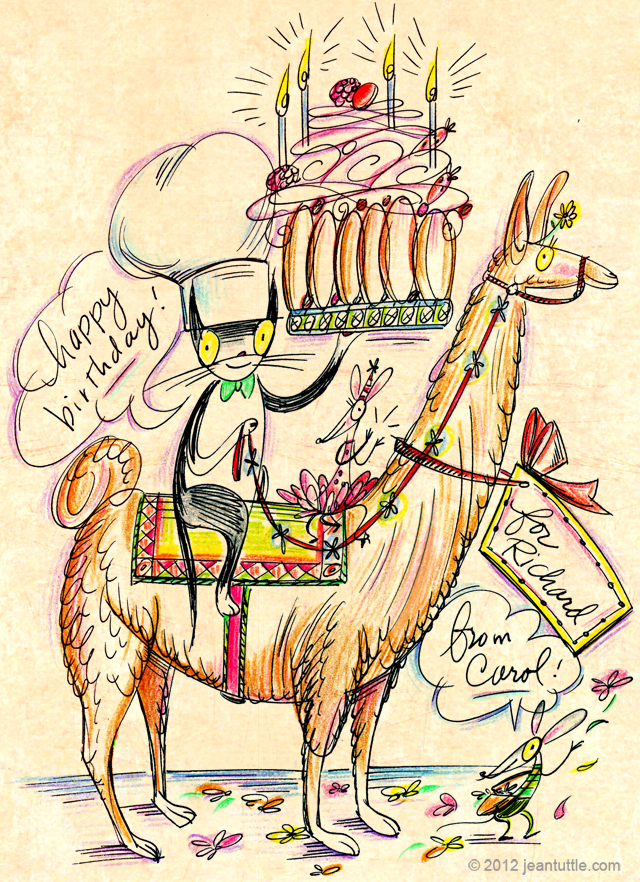 happy
birthday!
for
Richard
from
Carol!
© 2012 jeantuttle.com